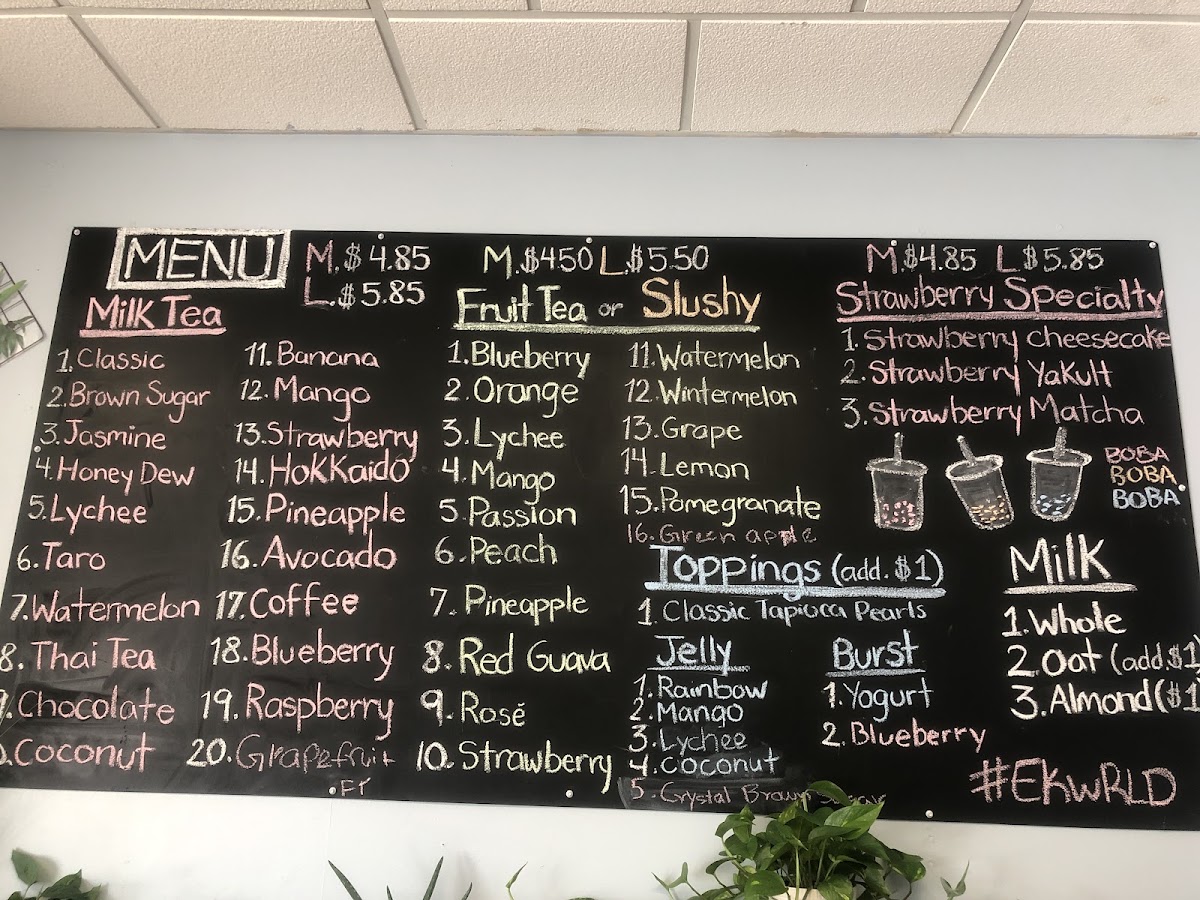 MENU
M.$4.85
L.$5.85
Milk Tea
1.Classic
2.Brown Sugar
3.Jasmine
4.Honey Dew
5.Lychee
6.Taro
7.Watermelon
8.Thai Tea
9.Chocolate
Coconut
11.Banana
12.Mango
13.Strawberry
14.Hokkaido
15.Pineapple
16.Avocado
17.Coffee
18.Blueberry
19.Raspberry
20.Grapefruit
M.$450 L.$5.50
Fruit Tea or Slushy
1.Blueberry
2.Orange
3.Lychee
4.Mango
5.Passion
6.Peach
7.Pineapple
8.Red Guava
9.Rosé
10.Strawberry
11.Watermelon
12.Wintermelon
13.Grape
14.Lemon
15.Pomegranate
16.Green apple
Toppings (add.$1)
1.Classic Tapioca Pearls
Jelly
1.Rainbow
2.Mango
3.Lychee
4.Coconut
5.Crystal Brown Sugar
Burst
1.Yogurt
2.Blueberry
M.$4.85 L.$5.85
Strawberry Specialty
1.Strawberry cheesecake
2.Strawberry Yakult
3.Strawberry Matcha
BOBA
BOBA
BOBA
Milk
1.Whole
2.Oat (add.$1)
3.Almond($1
#EKWRLD